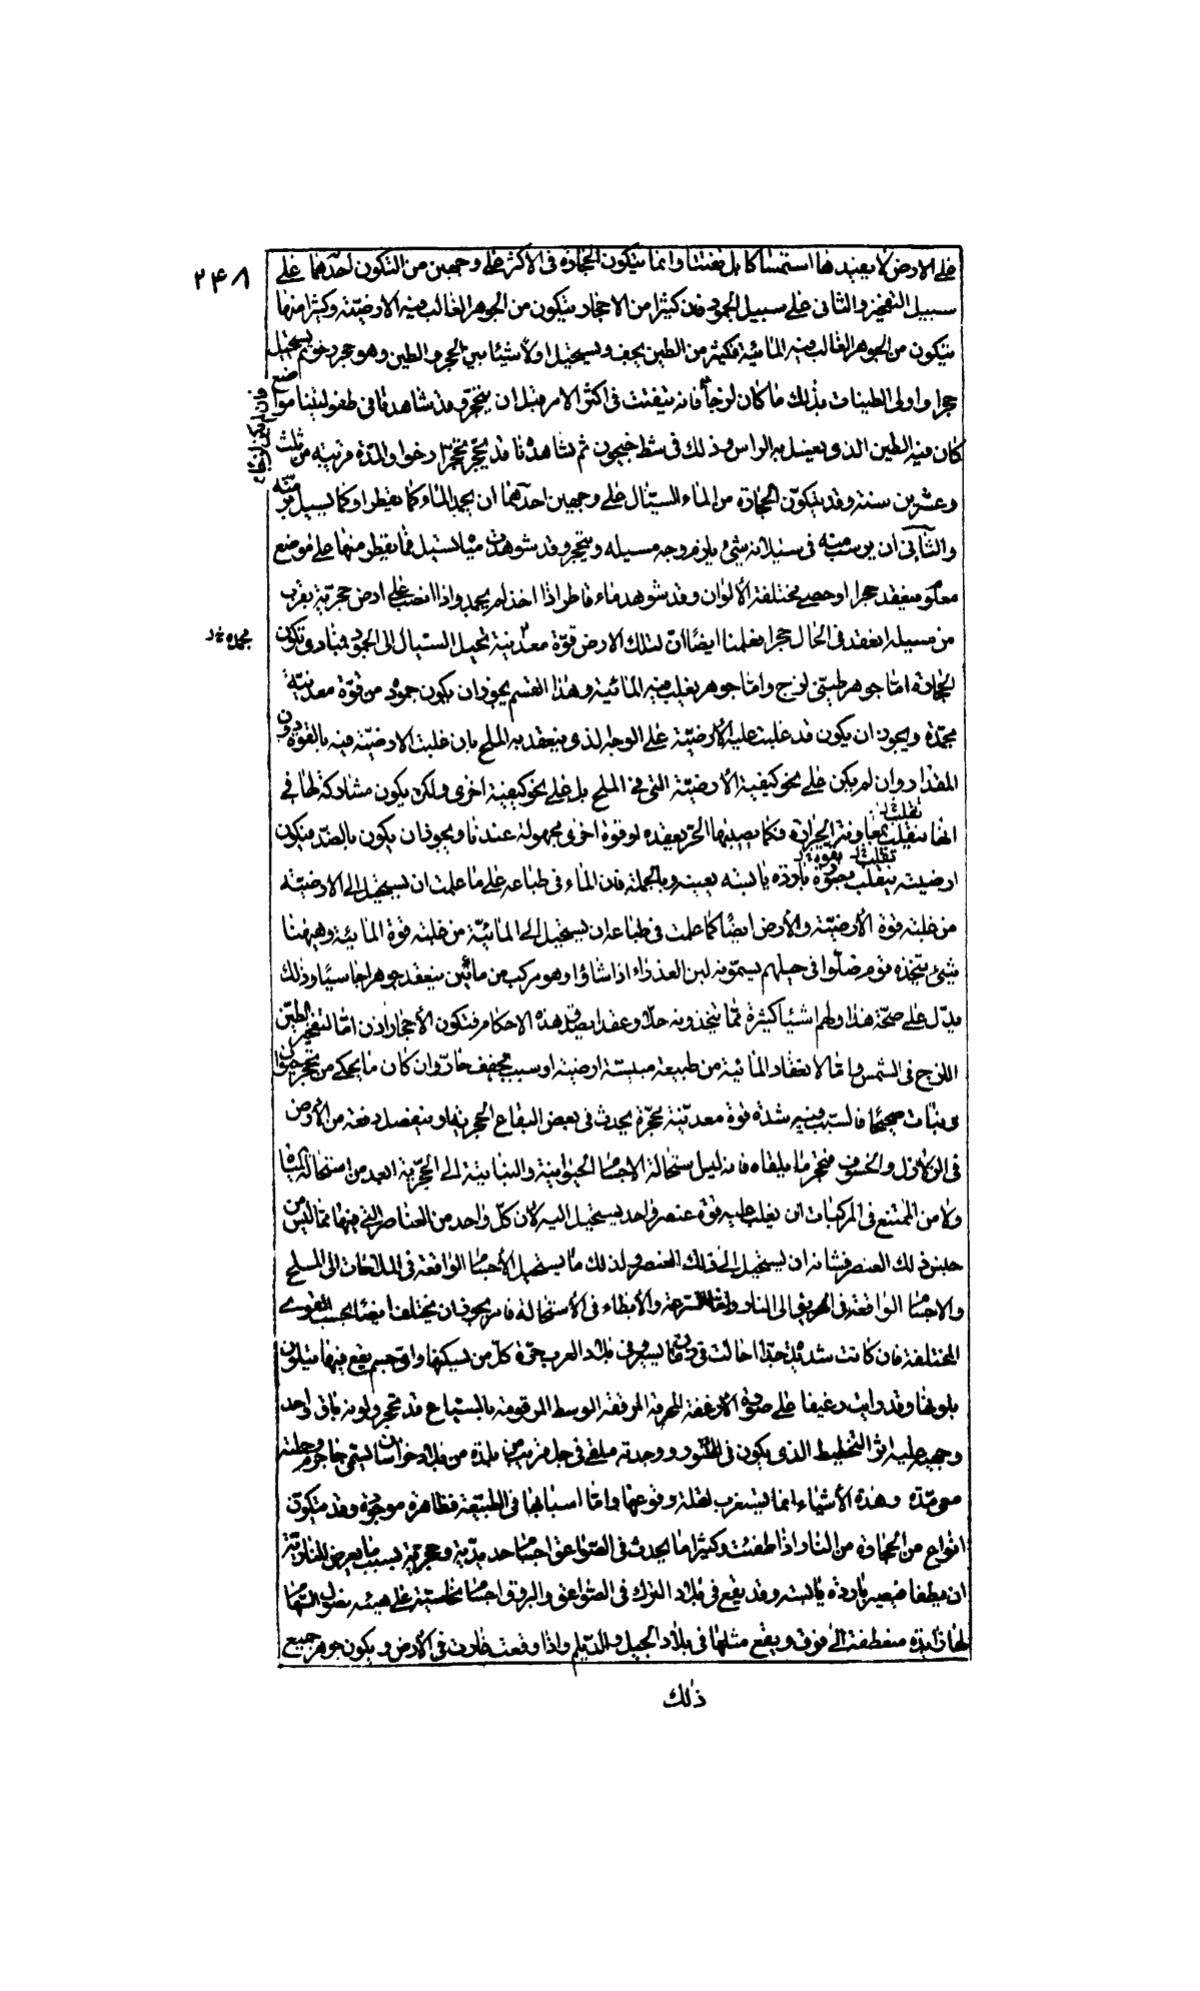 ٢٤٨
على الارض لا يفيدها استمساكا بل تفتتا وانما يتكون الحجارة فى الاكثر على وجهين من التكون احدهما على
سبيل التفخير والثانى على سبيل الجمود فان كثيرا من الاحجار يتكون من الجوهر الغالب فيه الارضيّة وكثيرا منها
يتكون من الجوهر الغالب فيه المائيّة فكثير من الطين يجف ويستحيل اولا شيئا بين الحجر والطين وهو حجر رخو ثم يستحيل
حجرا واولى الطينات بذلك ما كان لزجا فانه يتفتت فى اكثر الامر قبل ان يتحجر وقد شاهدنا فى طفوليتنا مواضع
فان لم يكن لزجا
كان فيه الطين الذى يغسل به الراس وذلك فى شط جيحون ثم شاهدناه قد تحجّر تحجّرا رخوا والمدّة قريبة من ثلث
وعشرين سنة وقد يتكوّن الحجارة من الماء السيّال على وجهين احدهما ان يجمد الماء كما يقطر او كما يسيل برمّته
والثانى ان يرسب منه فى سيلانه شئ يلزم وجه مسيله ويتحجر وقد شوهدت مياه تسيل فما يقطر منها على موضع
معلوم ينعقد حجرا او حصى مختلفة الالوان وقد شوهد ماء قاطر اذا اخذ لم يجمد واذا انصب على ارض حجريّة يقرب
من مسيله انعقد فى الحال حجرا فعلمنا ايضا انّ لتلك الارض قوّة معدنية تحيل السيال الى الجمود فمبادى تكون
مجمدة خ‌ر
الحجارة امّا جوهر طينىّ لزج وامّا جوهر يغلب فيه المائية وهذا القسم يجوز ان يكون جموده من قوّة معدنيّة
مجمّدة ويجوز ان يكون قد غلبت عليه الارضيّة على الوجه الذى ينعقد به الملح بان غلبت الارضيّة فيه بالقوة دون
المقدار وان لم يكن على نحو كيفية الارضيّة التى فى الملح بل على نحو كيفية اخرى ولكن يكون مشاركة لها فى
انها تنقلب بمعاونة الحرارة فكما يصيبها الحرّ يعقده او قوة اخرى مجهولة عندنا ويجوز ان يكون بالضدّ فيكون
ارضيته يتقلب بقوة باردة يابسة يعينه وبالجملة فان الماء فى طباعه على ما علمت ان يستحيل الى الارضيّة
من غلبة قوة الارضيّة والارض ايضا كما علمت فى طباعه ان يستحيل الى المائيّة من غلبة قوة المائيّة وههنا
شئ يتّخذه قوم ضلّوا فى حيلهم يسمّونه لبن العذراء اذا شاؤا وهو مركب من مائين ينعقد جوهرا جاسيا وذلك
يدلّ على صحّة هذا ولهم اشياء كثيرة ممّا يتخذونه حلّا وعقدا يصدق هذه الاحكام فتكون الاحجار اذن امّا لتفخير الطين
اللزج فى الشمس وامّا لانعقاد المائية من طبيعة ميبسة ارضيّة او سبب مجفف حارّ وان كان ما يحكى من تحجر حيوانات
ونبات صحيحا فالسبب فيه شدّة قوة معدنيّة محجّرة يحدث فى بعض البقاع الحجرية او ينفصل دفعة من الارض
فى الزلازل والخسوف فتحجر ما يلقاه فانه ليس استحالة الاجسام الحيوانية والنباتية الى الحجريّة ابعد من استحالة المياه
ولا من الممتنع فى المركبات ان يغلب عليه قوة عنصر واحد يستحيل اليه لان كلّ واحد من العناصر التى فيها ممّا ليس من
جنس ذلك العنصر فشانه ان يستحيل الى ذلك العنصر ولذلك ما يستحيل الاجسام الواقعة فى الملاحات الى الملح
والاجسام الواقعة فى الحريق الى النار وامّا السرعة والابطاء فى الاستحالة فانه يجوز ان يختلف ايضا بحسب القوى
المختلفة فان كانت شديدة جدّا احالت فى زمان يسير وفى بلاد العرب حرّة كلّ من يسكنها واىّ جسم يقع فيها يتلون
بلونها وقد رايت رغيفا على صورة الارغفة المحرقة المرققة الوسط المرقومة بالسباع قد تحجّر ولونه باق واحد
وجهيه عليه اثر التخطيط الذى يكون فى التنور ووجدته ملقى فى جبل قريب من بلدة من بلاد خراسان تسمّى جاجرم وحملته
معى مدّة وهذه الاشياء انما تستغرب لقلة وقوعها وامّا اسبابها فى الطبيعة فظاهرة موجودة وقد يتكوّن
انواع من الحجارة من النار اذا طفئت وكثيرا ما يحدث فى الصواعق اجسام حديديّة وحجريّة بسبب ما يعرض للناريّة
ان يطفأ فيصير باردة يابسة وقد يقع فى بلاد الترك فى الصواعق والبروق اجسام نحاسيّة على هيئة نصول السهام
لها زائدة منعطفة الى فوق ويقع مثلها فى بلاد الجيل والديلم واذا وقعت غارت فى الارض ويكون جوهر جميع
ذلك